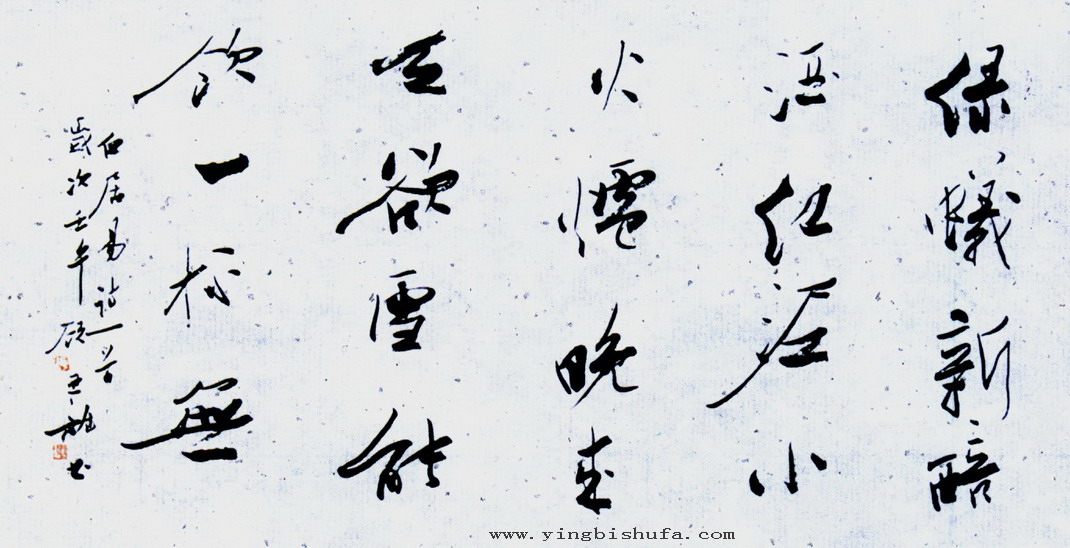 绿蟻新醅
酒红泥小
火爐晚来
天欲雪能
飲一杯無
白居易诗一首
歲次壬午
雄书
www.yingbishufa.com